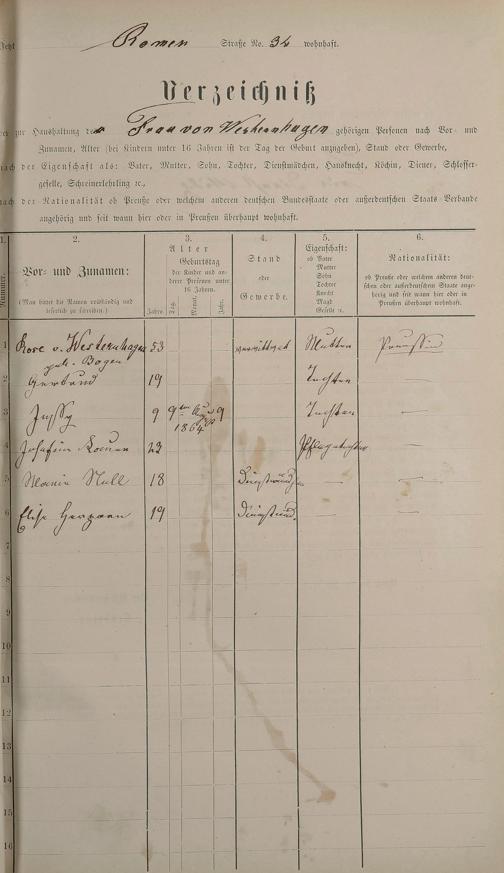 Romer Straße No. 34 wohnhaft.
Verzeichniß
der zur Haushaltung der Frau von Westernhagen gehörigen Personen nach Vor- und
Zunamen, Alter (bei Kindern unter 16 Jahren ist der Tag der Geburt anzugeben), Stand oder Gewerbe,
nach der Eigenschaft als: Vater, Mutter, Sohn, Tochter, Dienstmädchen, Hausknecht, Köchin, Diener, Schlosser-
geselle, Schreinerlehrling ꝛc.,
nach der Nationalität ob Preuße oder welchem anderen deutschen Bundesstaate oder außerdeutschen Staats-Verbande
angehörig und seit wann hier oder in Preußen überhaupt wohnhaft.
1. 2. 3. 4. 5. 6.
Nummer.
Vor- und Zunamen:
(Man bittet die Namen vollständig und
leserlich zu schreiben.)
Alter
Geburtstag
der Kinder und an-
derer Personen unter
16 Jahren.
Jahre. Tag. Monat. Jahr.
Stand
oder
Gewerbe.
Eigenschaft:
ob Vater
Mutter
Sohn
Tochter
Knecht
Magd
Geselle ꝛc.
Nationalität:
ob Preuße oder welchem anderen deut-
schen oder außerdeutschen Staate ange-
hörig und seit wann hier oder in
Preußen überhaupt wohnhaft.
1 Rose v. Westernhagen 53 verwittwet Mutter Preussin
geb. Bogen
2 Gertrud 19 Tochter —
3 Jussy 9 9ten Aug 9 Tochter —
1864
4 Josefine 23 Pflegetochter —
5 Maria Null 18 Dienstmädch — —
6 Elise Hermann 19 Dienstmd. — —
7
8
9
10
11
12
13
14
15
16